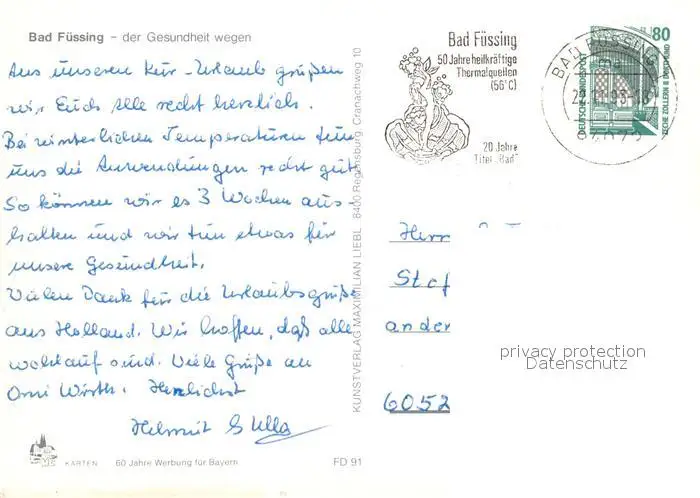 Bad Füssing - der Gesundheit wegen
Aus unseren Kur-Urlaub grüßen
wir Euch Alle recht herzlich.
Bei winterlichen Temperaturen tun
uns die Anwendungen recht gut.
So können wir es 3 Wochen aus-
halten und wir tun etwas für
unsere Gesundheit.
Vielen Dank für die Urlaubsgrüße
aus Holland. Wir hoffen, daß alle
wohlauf sind. Viele Grüße an
Omi Wirth. Herzlichst
Helmut & Ulla
KARTEN 60 Jahre Werbung für Bayern FD 91
KUNSTVERLAG MAXIMILIAN LIEBL 8400 Regensburg Cranachweg 10
Bad Füssing
50 Jahre heilkräftige
Thermalquellen
(56°C)
20 Jahre
Titel "Bad"
BAD FÜSSING
80
DEUTSCHE BUNDESPOST
ZECHE ZOLLERN II DORTMUND
Herr
Stef
an der
6052
privacy protection
Datenschutz